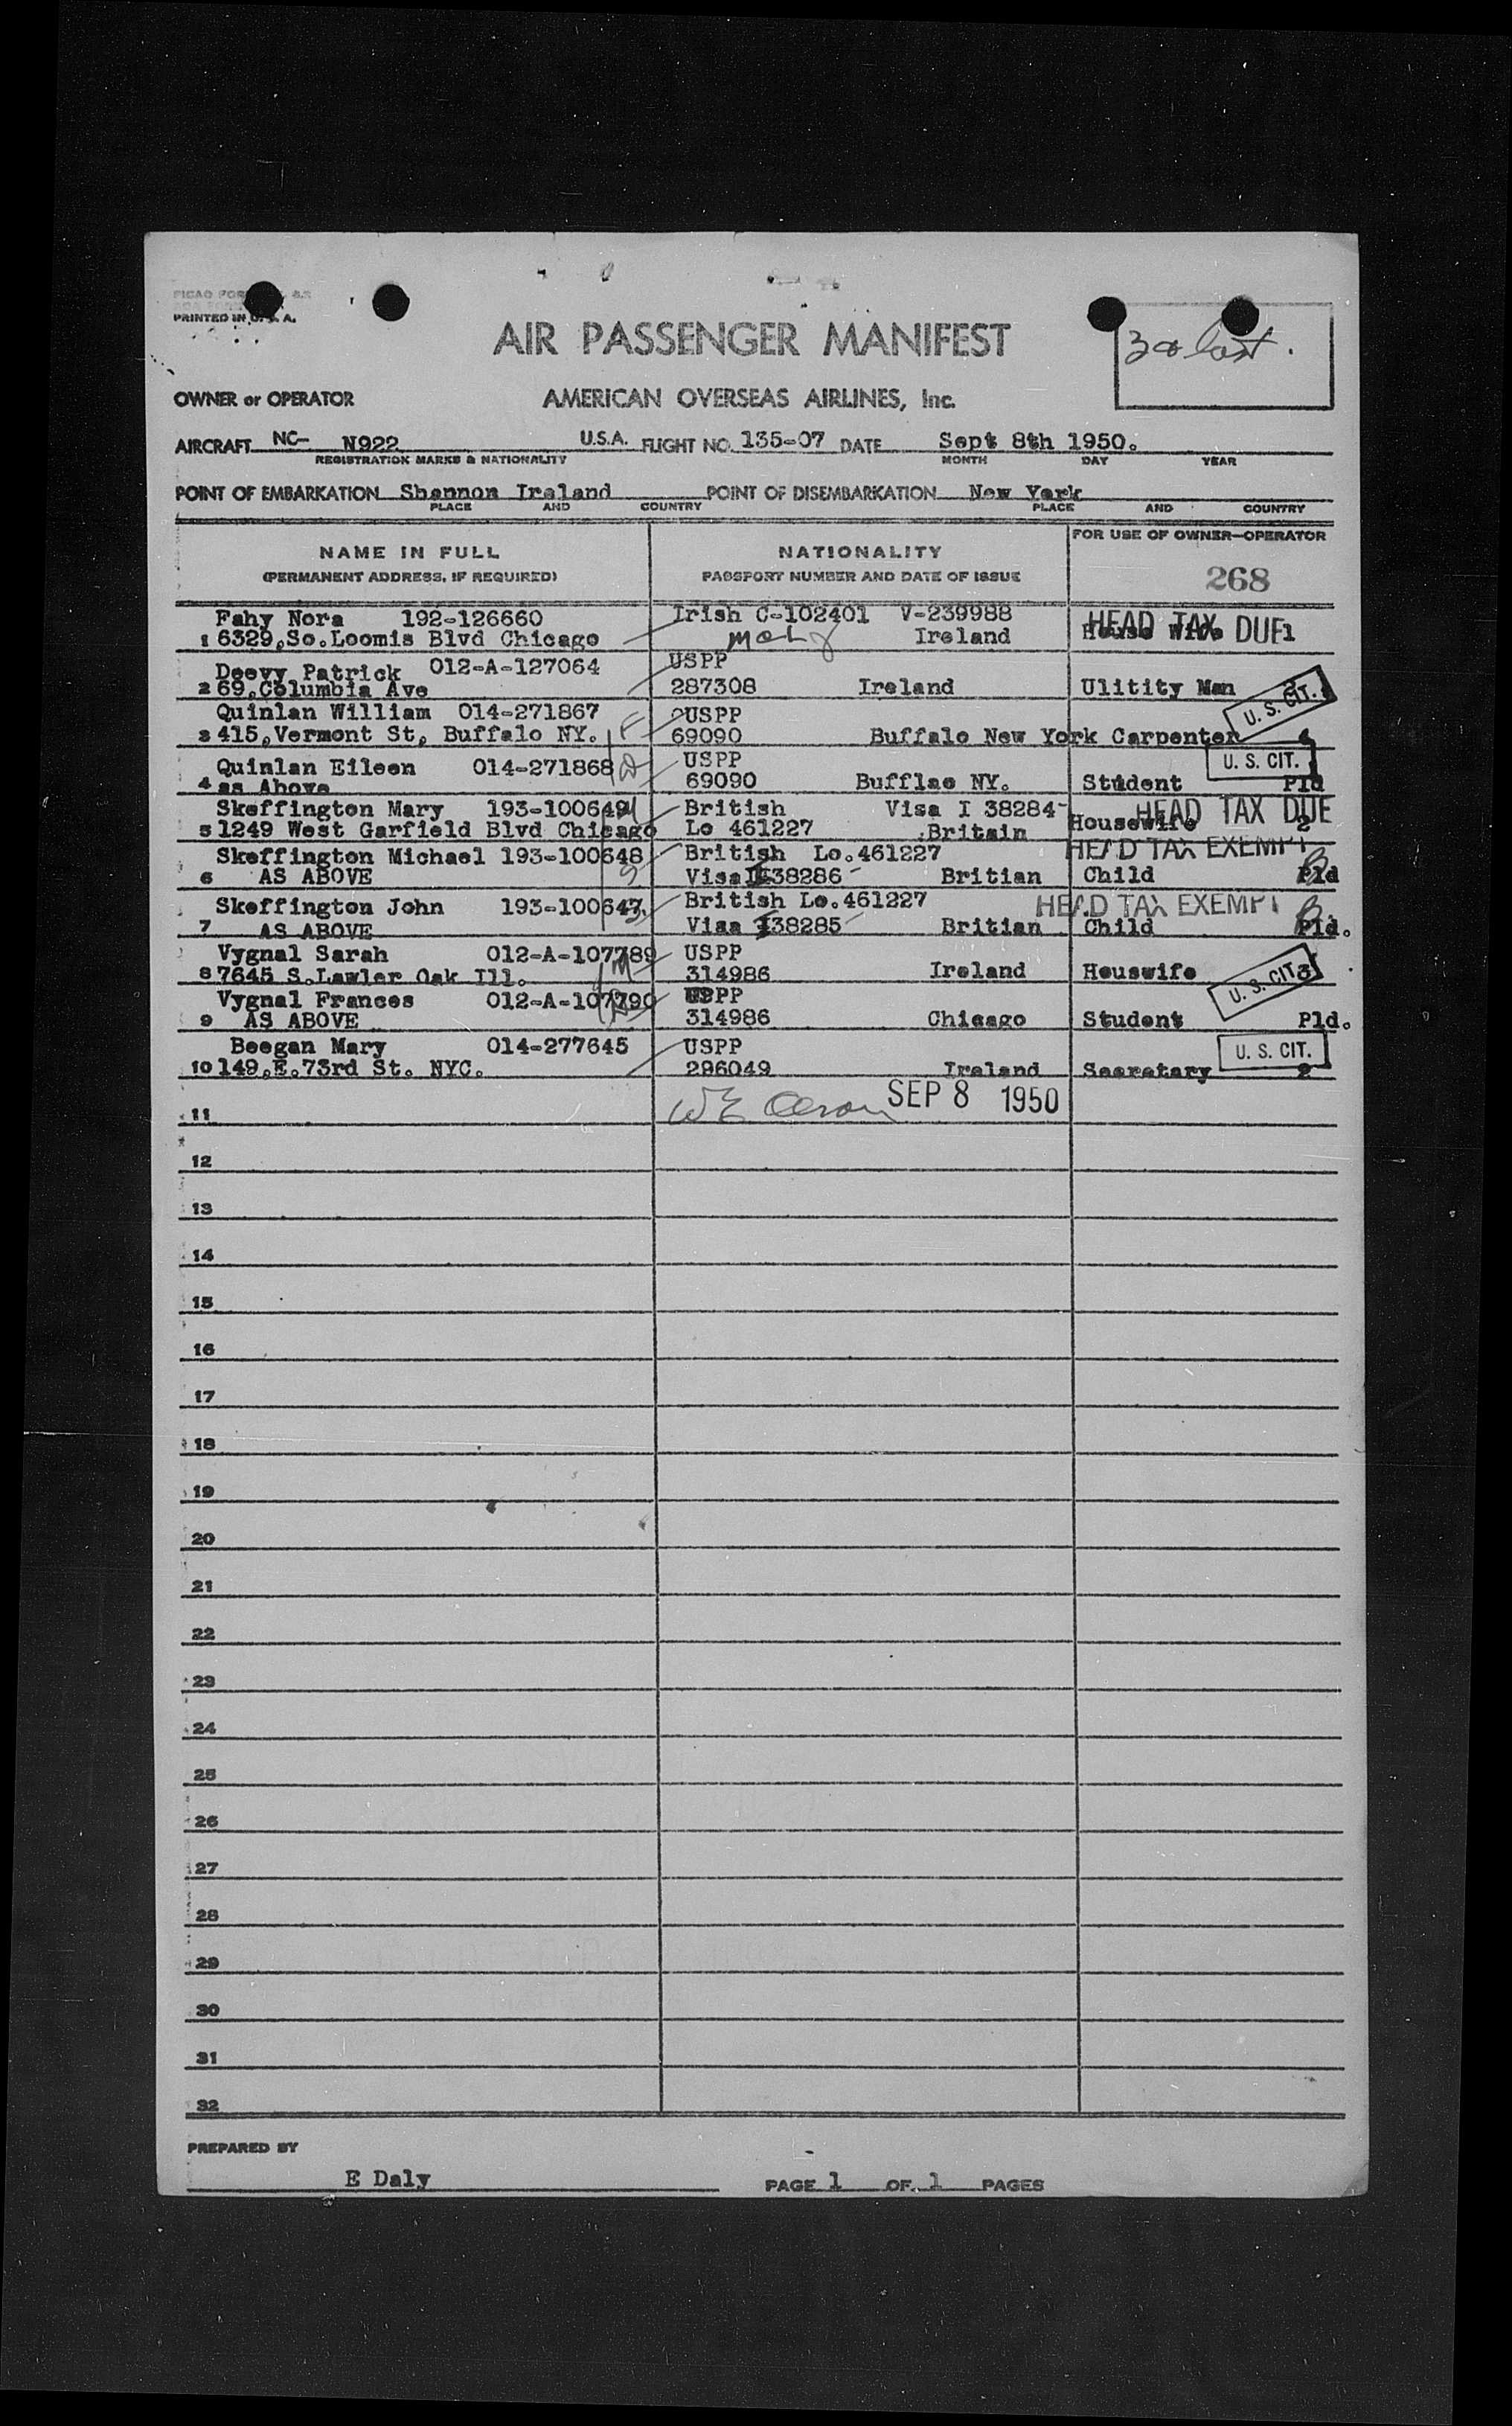 PRINTED IN U. S. A.
AIR PASSENGER MANIFEST
OWNER or OPERATOR AMERICAN OVERSEAS AIRLINES, Inc.
AIRCRAFT NC- N922 U.S.A. FLIGHT NO. 135-07 DATE Sept 8th 1950.
REGISTRATION MARKS & NATIONALITY MONTH DAY YEAR
POINT OF EMBARKATION Shannon Ireland POINT OF DISEMBARKATION New York
PLACE AND COUNTRY PLACE AND COUNTRY
NAME IN FULL NATIONALITY FOR USE OF OWNER-OPERATOR
(PERMANENT ADDRESS, IF REQUIRED) PASSPORT NUMBER AND DATE OF ISSUE 268
Fahy Nora 192-126660 Irish C-102401 V-239988 HEAD TAX DUE
1 6329,So.Loomis Blvd Chicago Ireland House Wife 1
Deevy Patrick 012-A-127064 USPP
2 69,Columbia Ave 287308 Ireland Ulitity Man U. S. CIT.
Quinlan William 014-271867 USPP
3 415,Vermont St, Buffalo NY. F 69090 Buffalo New York Carpenter 4
Quinlan Eileen 014-271868 D USPP U. S. CIT.
4 as Above 69090 Bufflao NY. Student Pld
Skeffington Mary 193-100649 M British Visa I 38284 HEAD TAX DUE
5 1249 West Garfield Blvd Chicago Lo 461227 Britain Housewife 2
Skeffington Michael 193-100648 British Lo.461227 HEAD TAX EXEMPT
6 AS ABOVE S Visa I 38286 Britian Child Pld
Skeffington John 193-100647 British Lo.461227 HEAD TAX EXEMPT
7 AS ABOVE S Visa I 38285 Britian Child Pld.
Vygnal Sarah 012-A-107789 USPP
8 7645 S.Lawler Oak Ill. M 314986 Ireland Houswife 3 U. S. CIT.
Vygnal Frances 012-A-107790 USPP
9 AS ABOVE D 314986 Chicago Student Pld.
Beegan Mary 014-277645 USPP U. S. CIT.
10 149,E.73rd St. NYC. 296049 Ireland Secretary 2
11 SEP 8 1950
12
13
14
15
16
17
18
19
20
21
22
23
24
25
26
27
28
29
30
31
32
PREPARED BY
E Daly PAGE 1 OF 1 PAGES